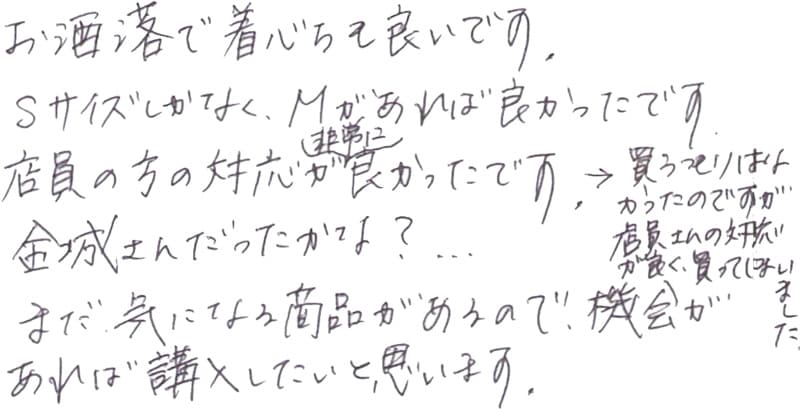 お洒落で着心ちも良いです。
Sサイズしかなく、Mがあれば良かったです
店員の方の対応が非常に良かったです。→買うつもりはな
かったのですが
店員さんの対応
が良く、買ってしまいました。
金城さんだったかな?...
まだ気になる商品があるので、機会が
あれば講入したいと思います。